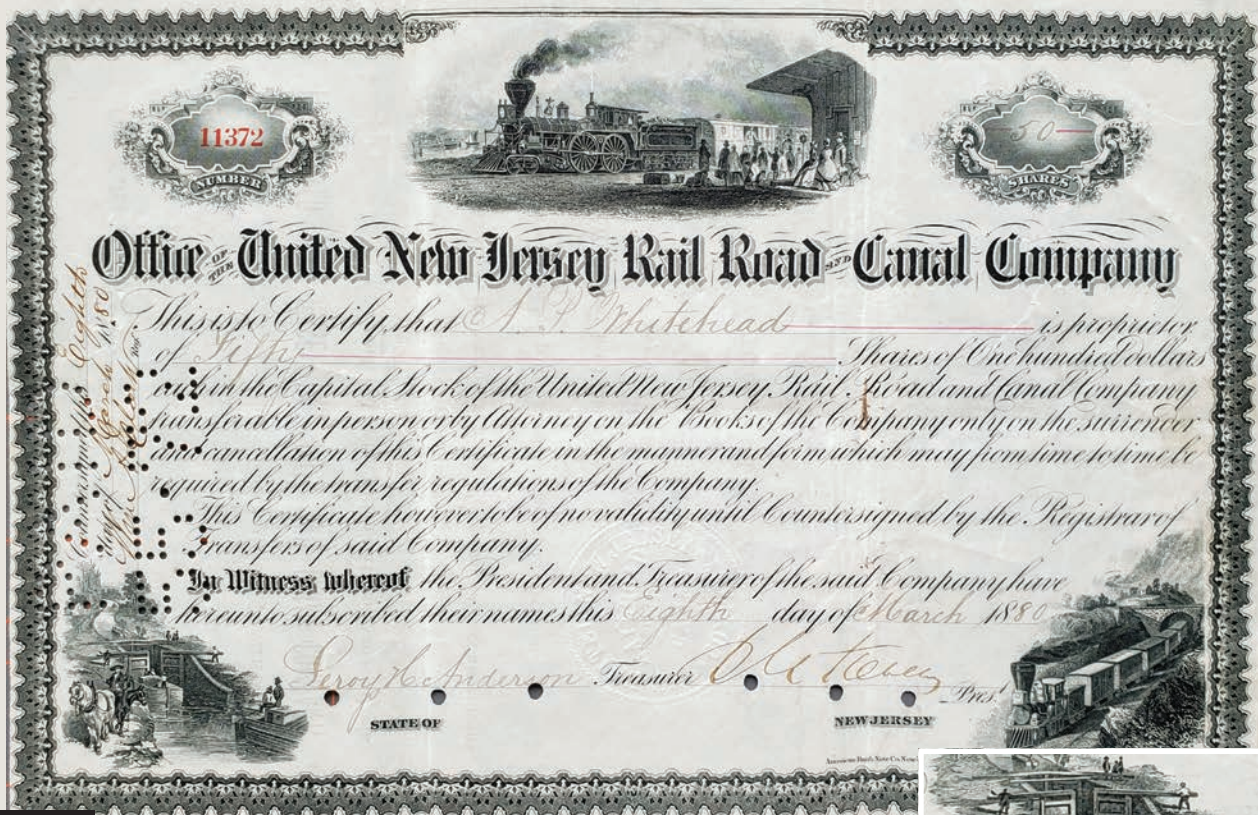 11372
NUMBER
50
SHARES
Office OF THE United New Jersey Rail Road AND Canal Company
This is to Certify, that A. P. Whitehead is proprietor
of Fifty Shares of One hundred dollars
each in the Capital Stock of the United New Jersey Rail Road and Canal Company
transferable in person or by Attorney on the Books of the Company only on the surrender
and cancellation of this Certificate in the manner and form which may from time to time be
required by the transfer regulations of the Company.
This Certificate however to be of no validity until Countersigned by the Registrar of
Transfers of said Company.
In Witness whereof the President and Treasurer of the said Company have
hereunto subscribed their names this Eighth day of March 1880
Leroy H. Anderson Treasurer Prest
STATE OF NEW JERSEY
American Bank Note Co. New
Countersigned this Eighth
day of March 1880